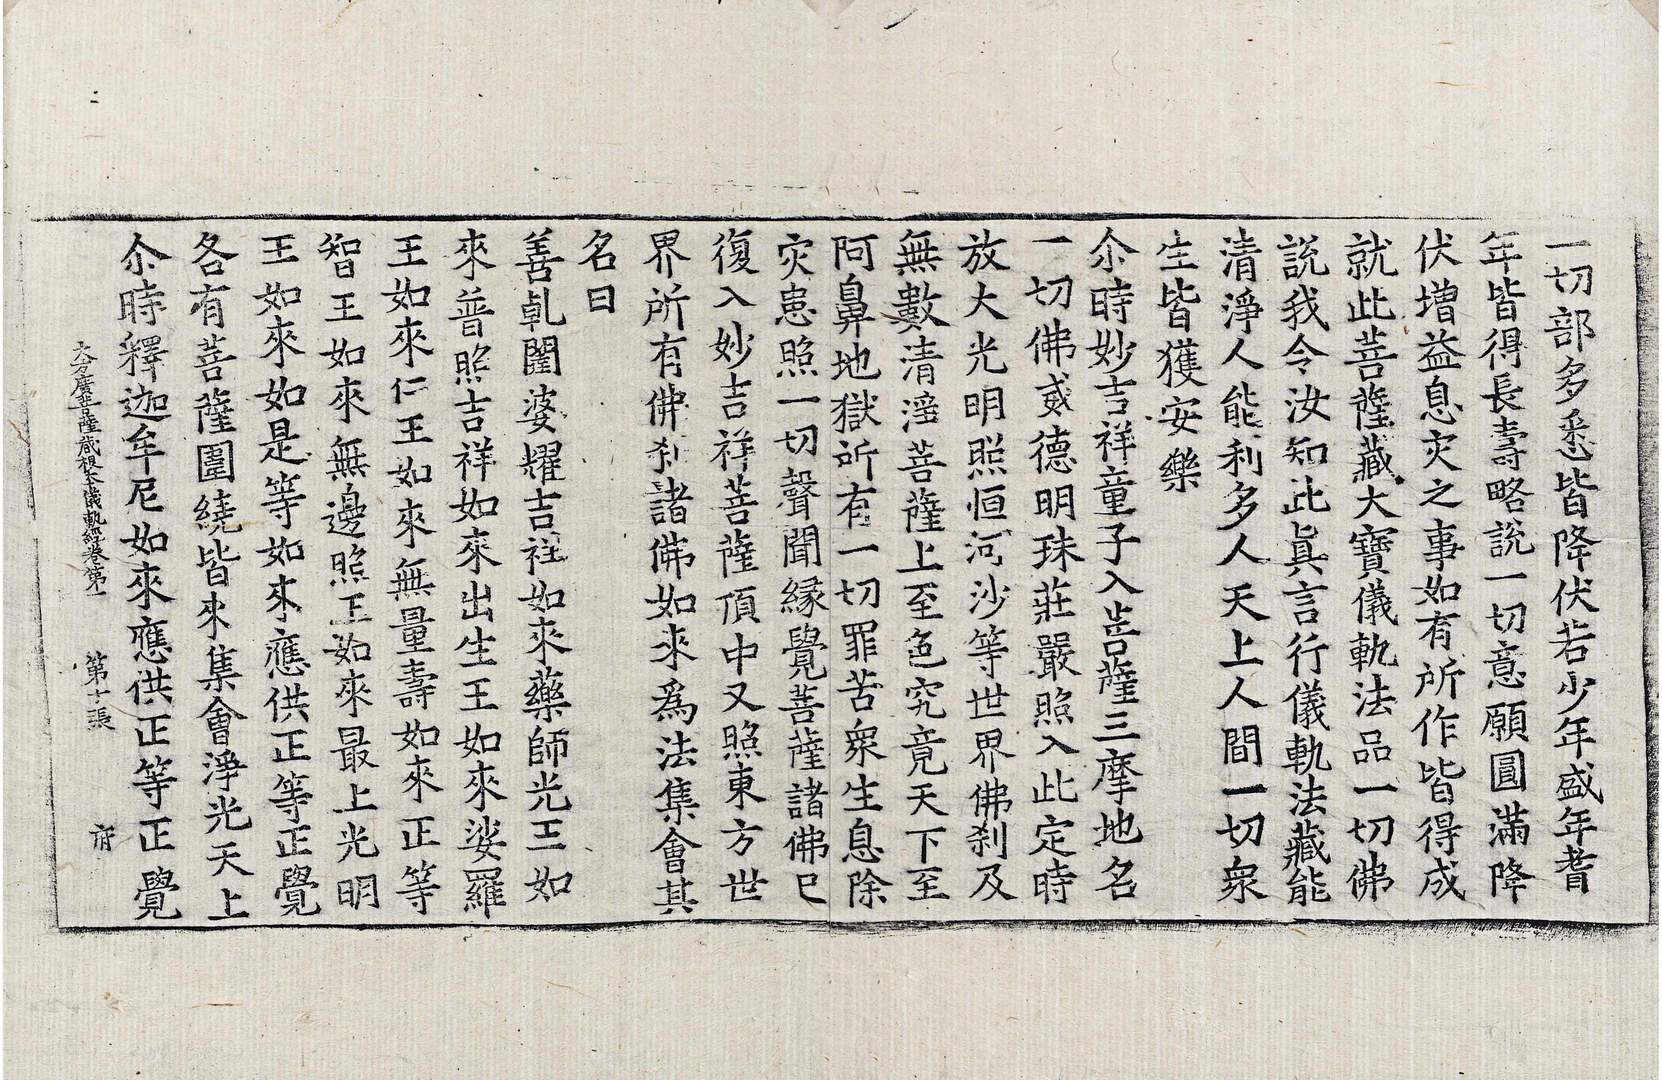 一切部多悉皆降伏若少年盛年耆
年皆得長壽略說一切意願圓滿降
伏增益息灾之事如有所作皆得成
就此菩薩藏大寶儀軌法品一切佛
說我今汝知此眞言行儀軌法藏能
清淨人能利多人天上人間一切衆
生皆獲安樂
尒時妙吉祥童子入菩薩三摩地名
一切佛威德明珠莊嚴照入此定時
放大光明照恒河沙等世界佛刹及
無數清淨菩薩上至色究竟天下至
阿鼻地獄所有一切罪苦衆生息除
灾患照一切聲聞緣覺菩薩諸佛已
復入妙吉祥菩薩頂中又照東方世
界所有佛刹諸佛如來爲法集會其
名曰
善乹闥婆耀吉祥如來藥師光王如
來普照吉祥如來出生王如來娑羅
王如來仁王如來無量壽如來正等
智王如來無邊照王如來最上光明
王如來如是等如來應供正等正覺
各有菩薩圍繞皆來集會淨光天上
尒時釋迦牟尼如來應供正等正覺
大方廣菩薩藏根本儀軌經卷第一 第十張 府